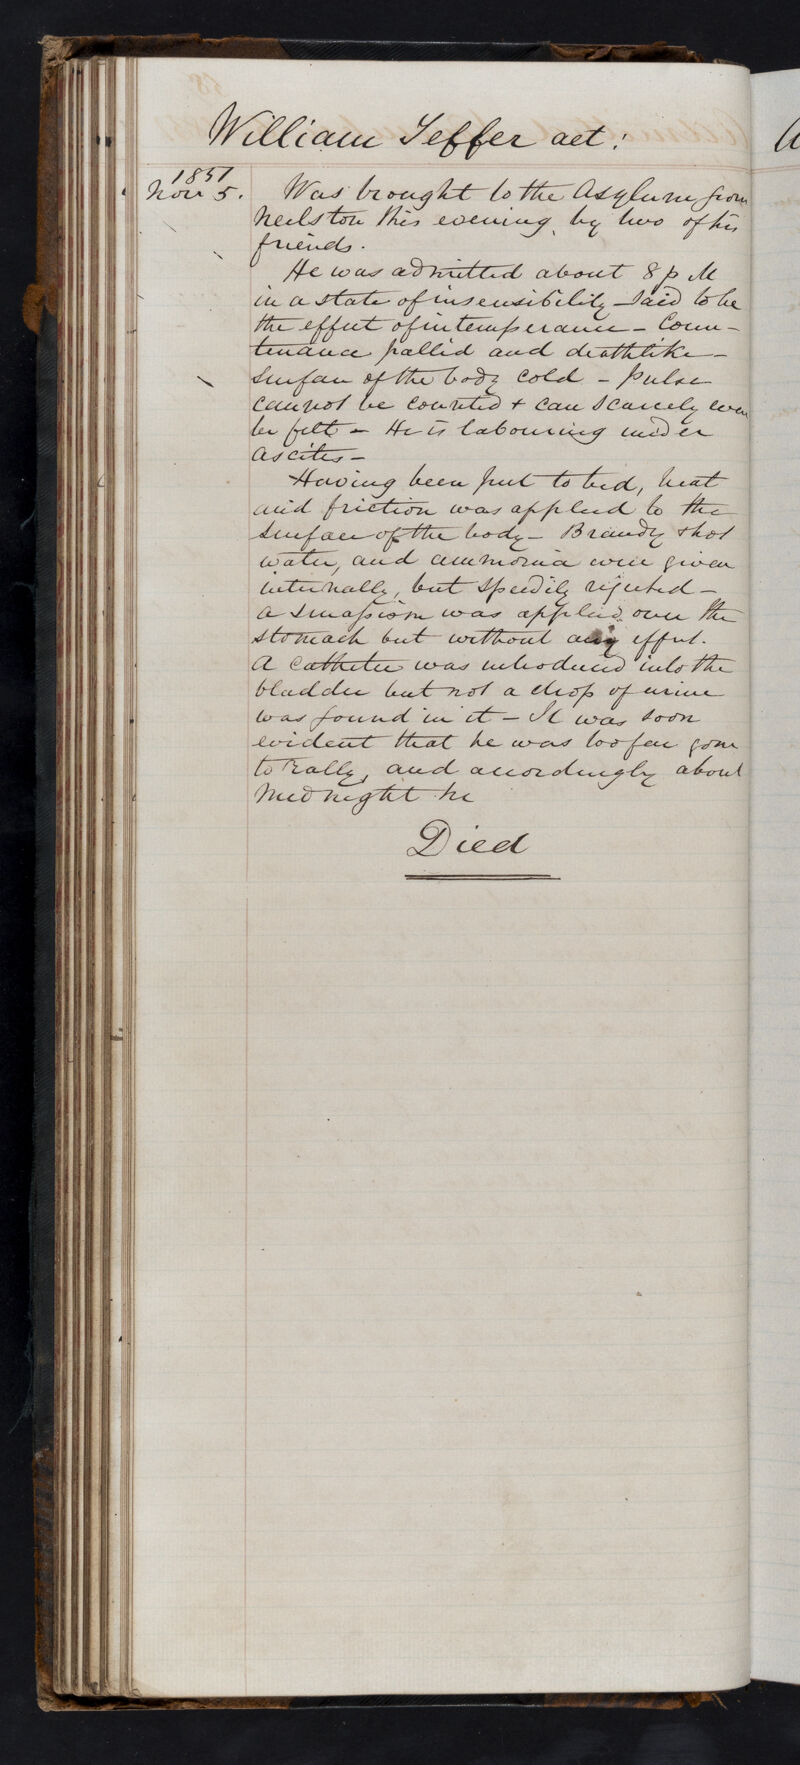 William Jeffer aet:
1851
Nov 5.
Was brought to the Asylum from
Neilston this evening, by two of his
friends.
He was admitted about 8 p M
in a state of insensibility – said to be
the effect of intemperance – Coun-
tenance pallid and deathlike –
Surface of the body cold – pulse
cannot be counted + can scarcely even
be felt – He is labouring under
ascites –
Having been put to bed, heat
and friction was applied to the
surface of the body – Brandy + hot
water, and ammonia were given
internally, but speedily rejected –
a sinapism was applied over the
stomach but without any effect.
A catheter was introduced into the
bladder but not a drop of urine
was found in it – It was soon
evident that he was too far gone
to rally, and accordingly about
Midnight he
Died